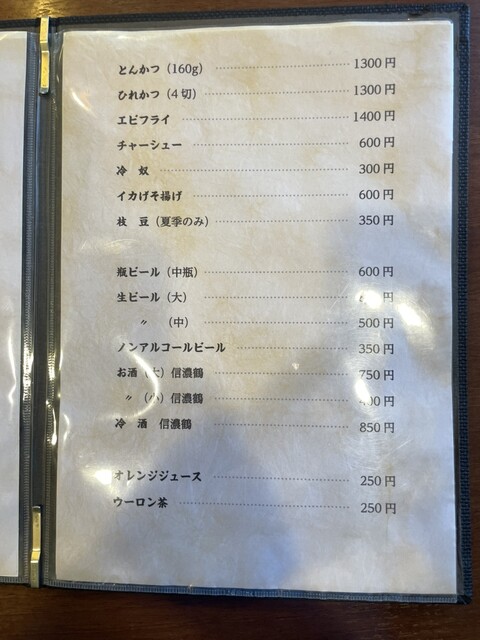 とんかつ（160g） 1300円
ひれかつ（4切） 1300円
エビフライ 1400円
チャーシュー 600円
冷 奴 300円
イカげそ揚げ 600円
枝 豆（夏季のみ） 350円
瓶ビール（中瓶） 600円
生ビール（大） 円
〃 （中） 500円
ノンアルコールビール 350円
お酒（大）信濃鶴 750円
〃 （小）信濃鶴 400円
冷 酒 信濃鶴 850円
オレンジジュース 250円
ウーロン茶 250円